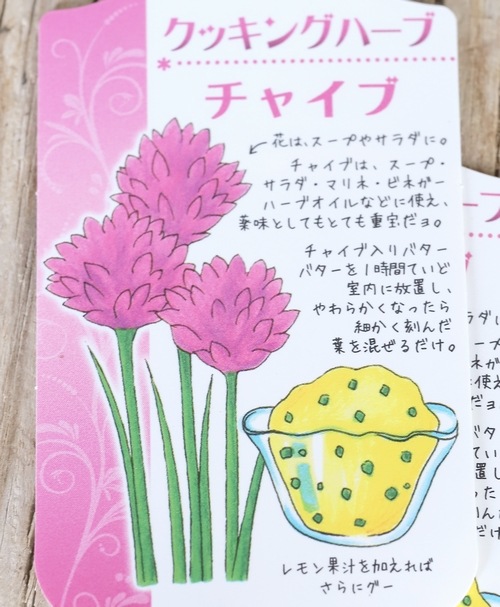 クッキングハーブ
チャイブ
花は、スープやサラダに。
チャイブは、スープ・
サラダ・マリネ・ビネガー
ハーブオイルなどに使え、
薬味としてもとても重宝だョ。
チャイブ入りバター
バターを1時間ていど
室内に放置し、
やわらかくなったら
細かく刻んだ
葉を混ぜるだけ。
レモン果汁を加えれば
さらにグー